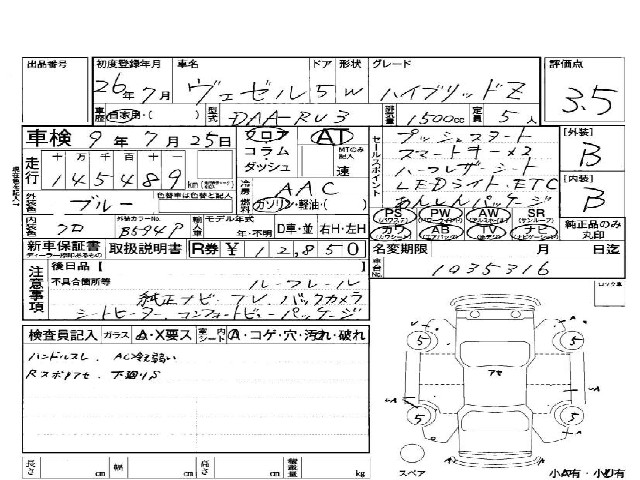 出品番号 初度登録年月 車名 ドア 形状 グレード 評価点
26年7月 ヴェゼル 5 W ハイブリッドZ 3.5
車歴 自家用・( ) 型式 DAA-RU3 排気量 1500cc 定員 5人
車検 9年7月25日 フロア AT セールスポイント プッシュスタート [外装]
走行 十 万 千 百 十 一 コラム MTのみ記入 スマートキー×2 B
145489km ダッシュ 速 ハーフレザーシート
冷房 AAC LEDライト、ETC [内装]
外装色 ブルー 色替車は色替と記入 燃料 ガソリン・軽油・( ) あんしんパッケージ B
PS PW AW SR
内装色 クロ 外装カラーNo. B594P 輸入車 モデル年式 年・不明 D車・並 右H・左H カワ AB TV ナビ 純正品のみ丸印
新車保証書 取扱説明書 R券 ¥12,850 名変期限 月 日迄
注意事項 後日品【 】 車台No. 1035316
不具合箇所等 ルーフレール ロック車
純正ナビ・TV、バックカメラ
シートヒーター、コンフォートビューパッケージ
検査員記入 ガラス A・X要ス 室内 シート A・コゲ・穴・汚れ・破れ
ハンドルスレ、AC冷え弱い
Rスポアセ、下廻りS
アセ
A
5 5
5 5
A
長さ cm 幅 cm 高さ cm 積載量 kg
スペア 小A有・小U有